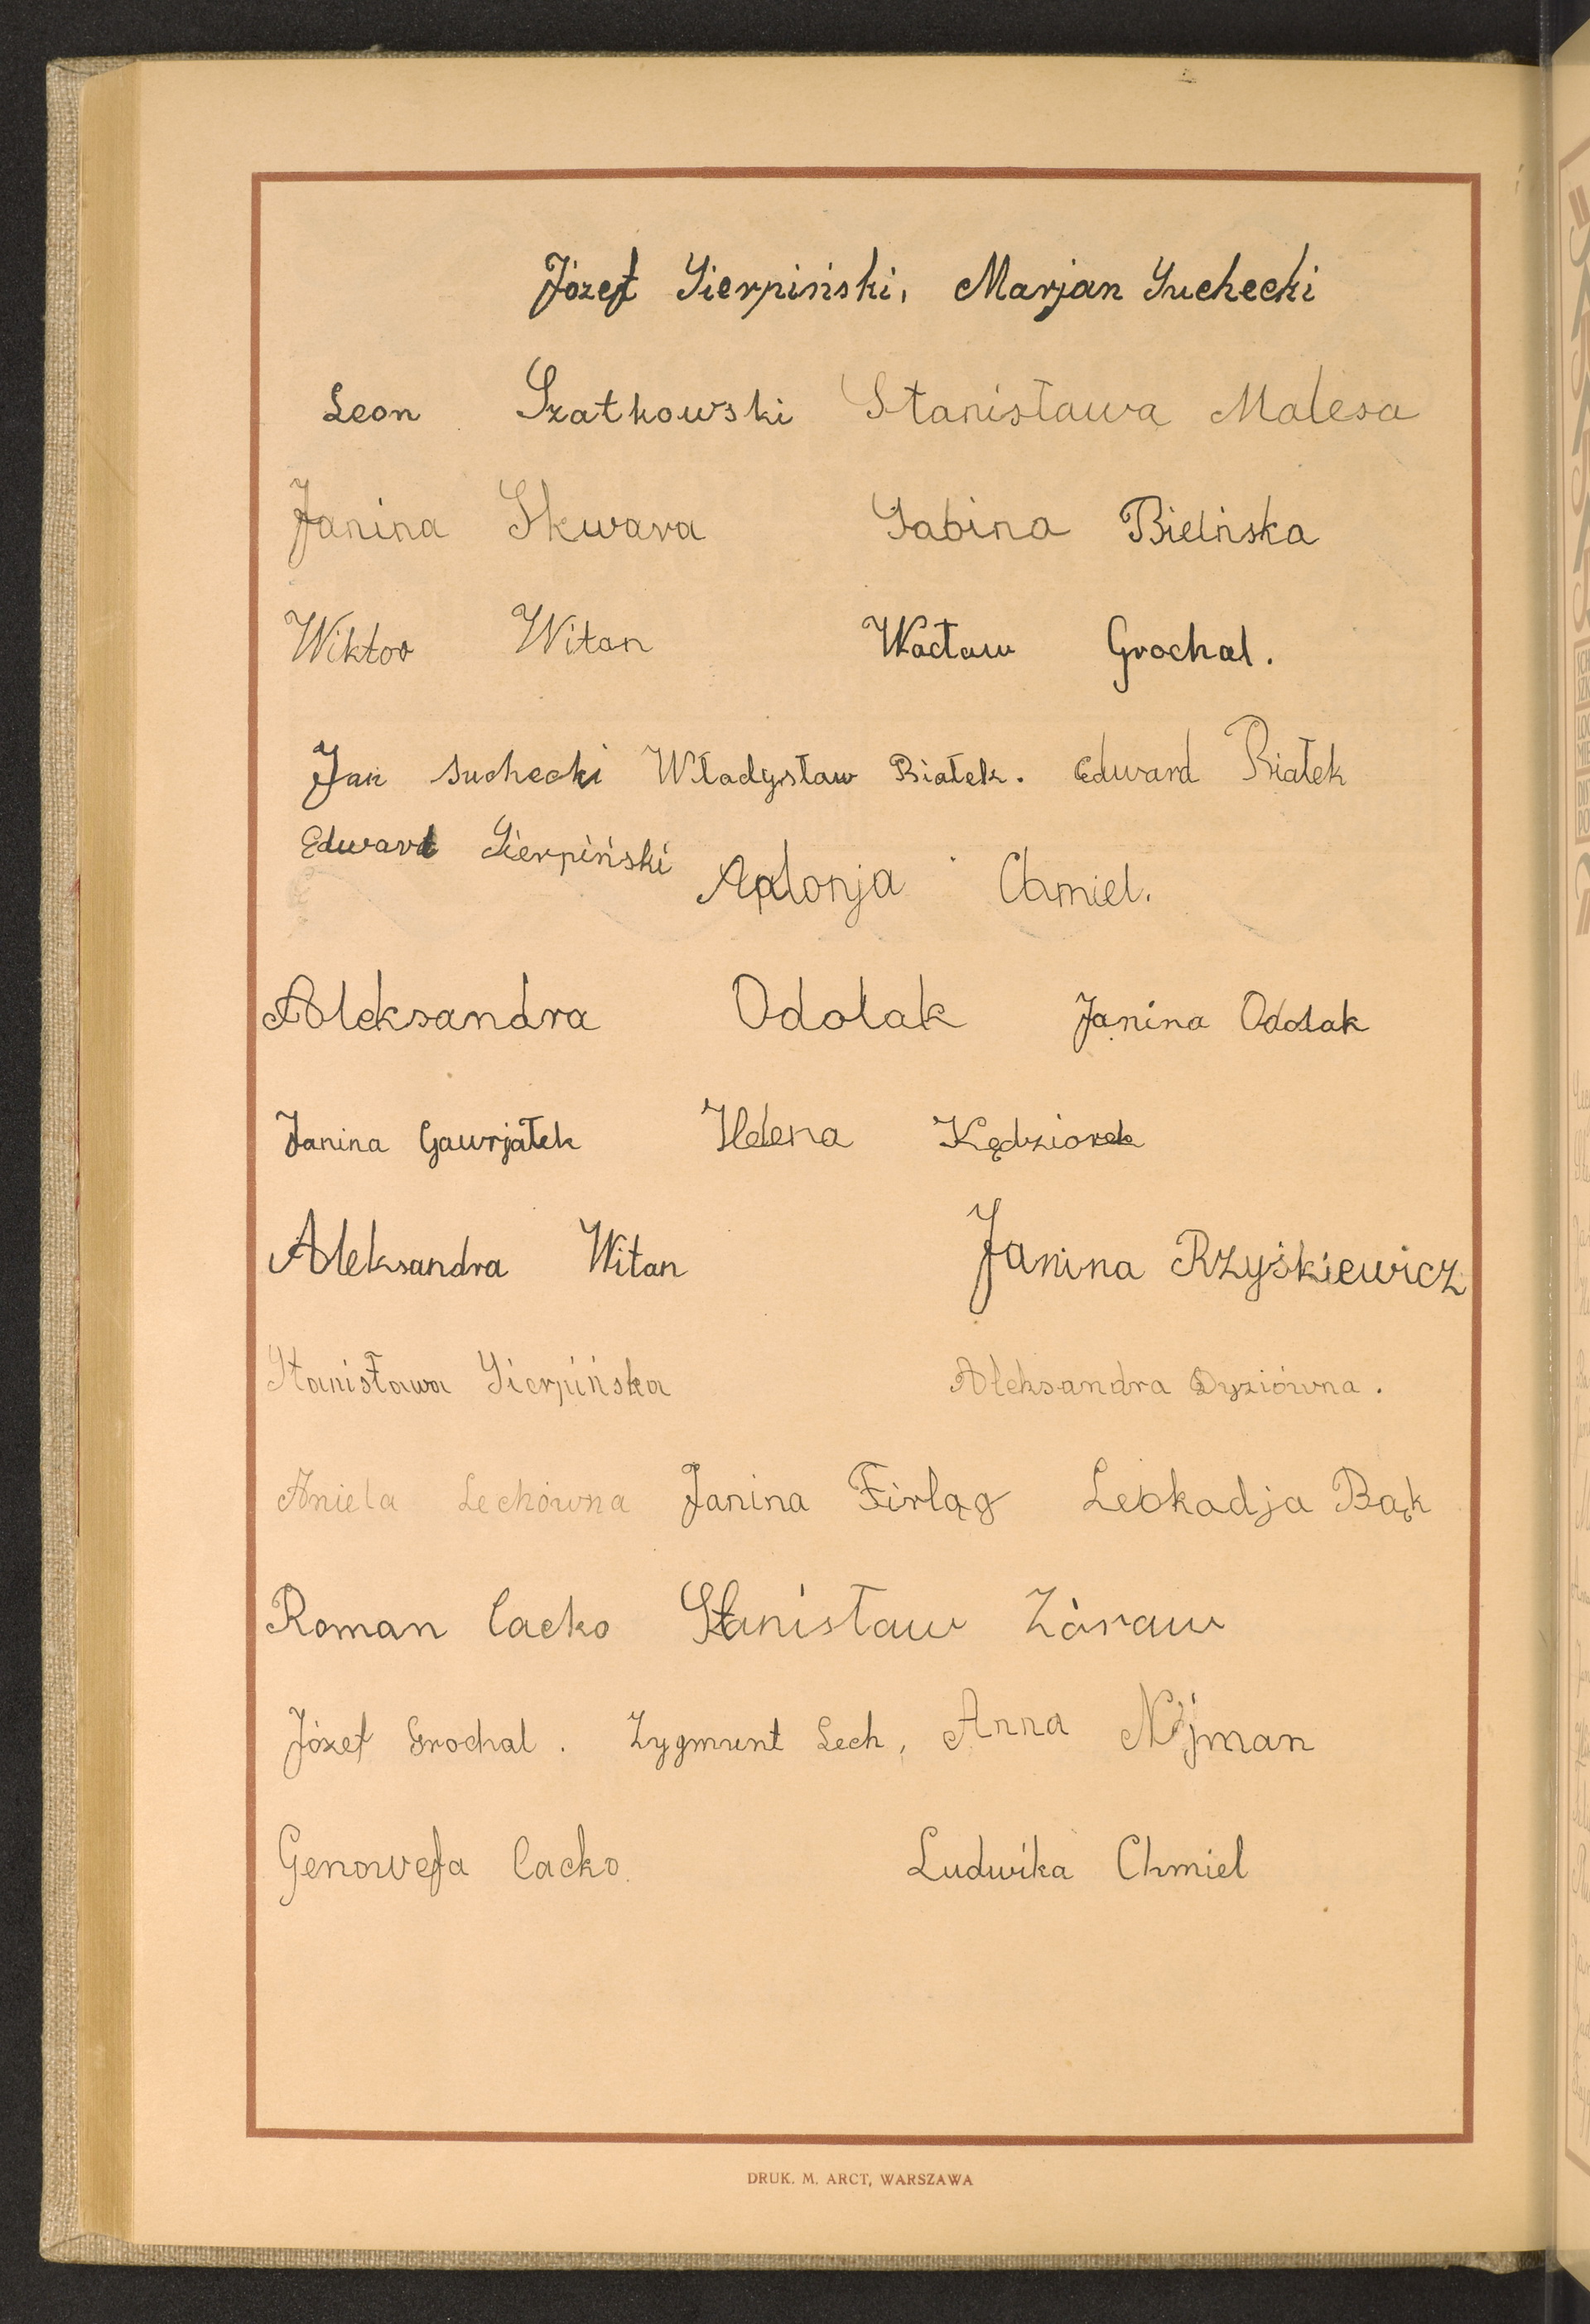 Józef Sierpiński, Marjan Suchecki
Leon Szatkowski Stanisława Malesa
Janina Skwara Sabina Bielińska
Wiktor Witan Wacław Grochal.
Jan Suchecki Władysław Białek. Edward Białek
Edward Sierpiński Apolonja Chmiel.
Aleksandra Odolak Janina Odolak
Janina Gawrjałek Helena Kędziorek
Aleksandra Witan Janina Rzyśkiewicz
Stanisława Sierpińska Aleksandra Dyziówna.
Aniela Lechówna Janina Firląg Leokadja Bąk
Roman Cacko Stanisław Żóraw
Józef Grochal. Zygmunt Lech, Anna Najman
Genowefa Cacko Ludwika Chmiel
DRUK. M. ARCT, WARSZAWA